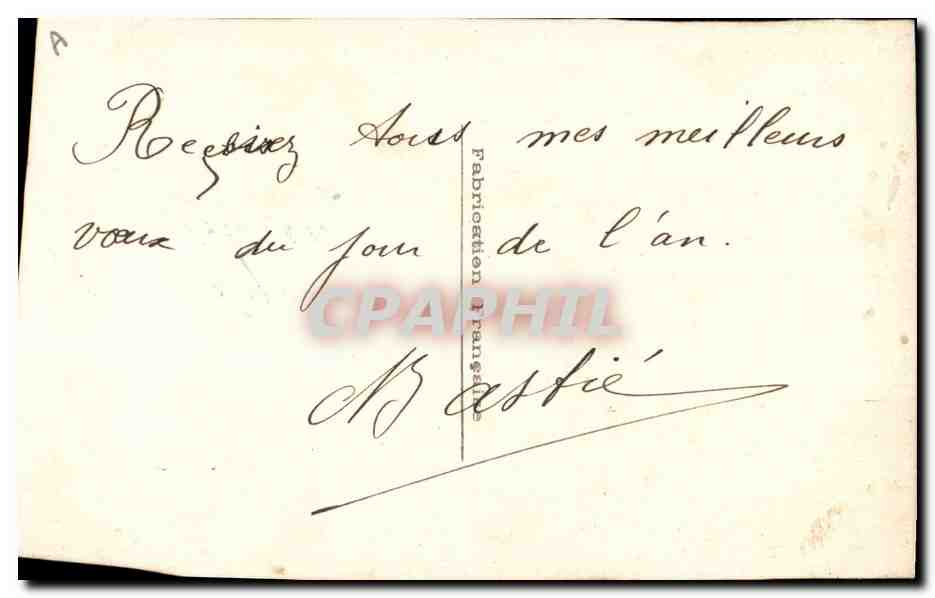 A
Recevez tous mes meilleurs
vœux du jour de l'an.
Bastié
Fabrication Française
CPAPHIL